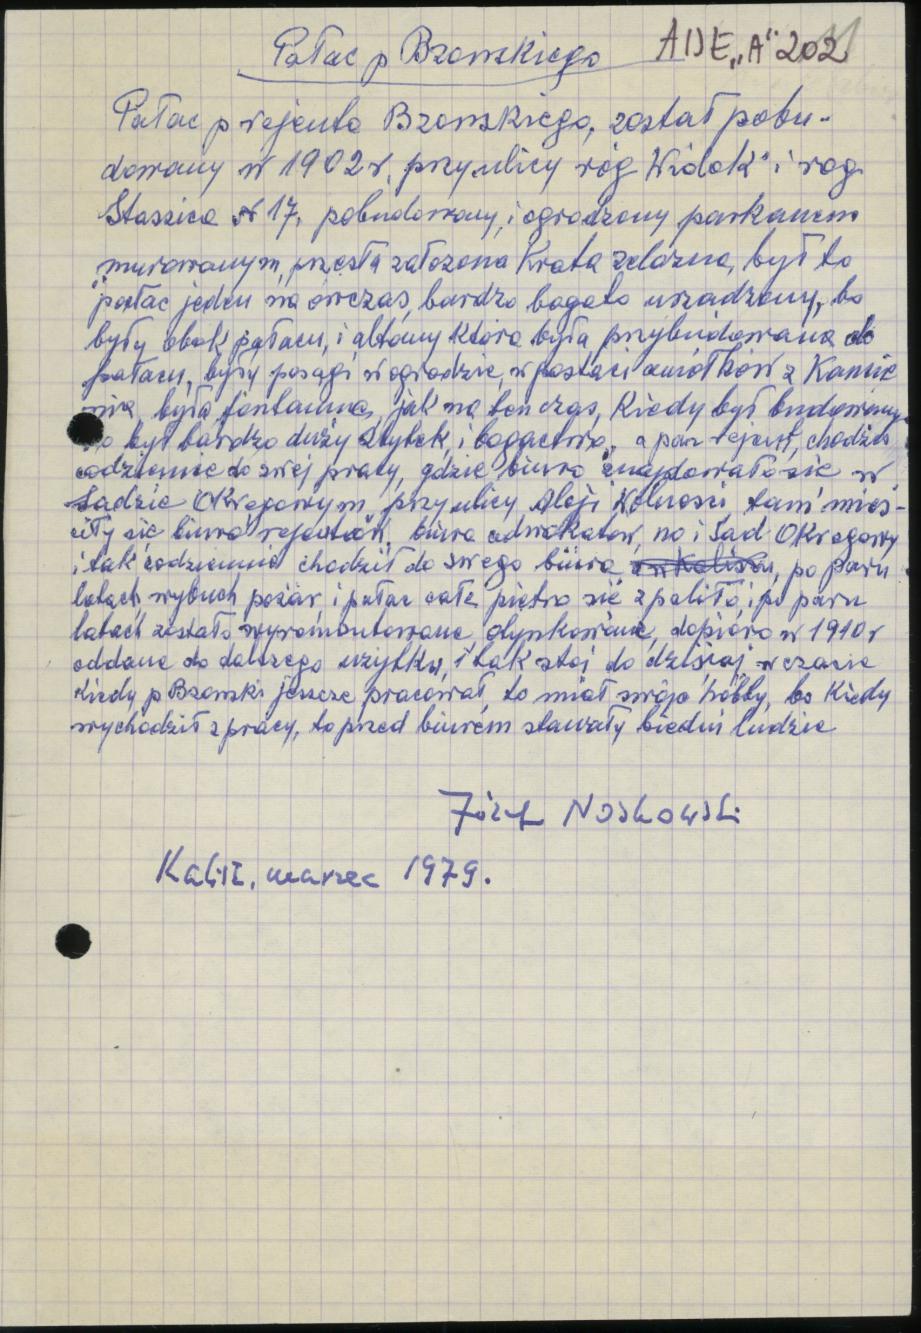 Pałac p Bzowskiego AIDE „A" 202
Pałac p rejenta Bzowskiego, został pobu-
dowany w 1902 r, przy ulicy róg Widok" i rog
Staszica N 17, pobudowany, i ogrodzony parkanem
murowanym, przęsła założona Krata zelazna, był to
pałac jeden na ówczas, bardzo bogato urzadzony, bo
były obok pałacu, i altany która była przybudowana do
pałacu, były posągi w ogrodzie, w postaci aniołków z Kamie
nia, była fontanna, jak na ten czas, Kiedy był budowany
to był bardzo duży zbytek, i bogactwo, a pan rejent, chodził
codziennie do swej pracy, gdzie biuro znajdowało sie w
Sadzie Okregowym, przy ulicy Aleji Wolnosci tam mies-
ciły się biura rejentów, biura adwokatow, no i Sad Okregowy
i tak codziennie chodził do swego biura w Kaliszu, po paru
latach, wybuch pożar, i pałac całe piętro się zpaliło, i po paru
latach zostało wyremontowane, otynkowane, dopiero w 1910 r
oddane do dalszego uzytku, i tak stoj do dzisiaj, w czasie
Kiedy p Bzowski jeszcze pracował, to miał swoje hobby, bo Kiedy
wychodził z pracy, to przed biurem stawały biedni ludzie
Józef Noskowski
Kalisz, marzec 1979.